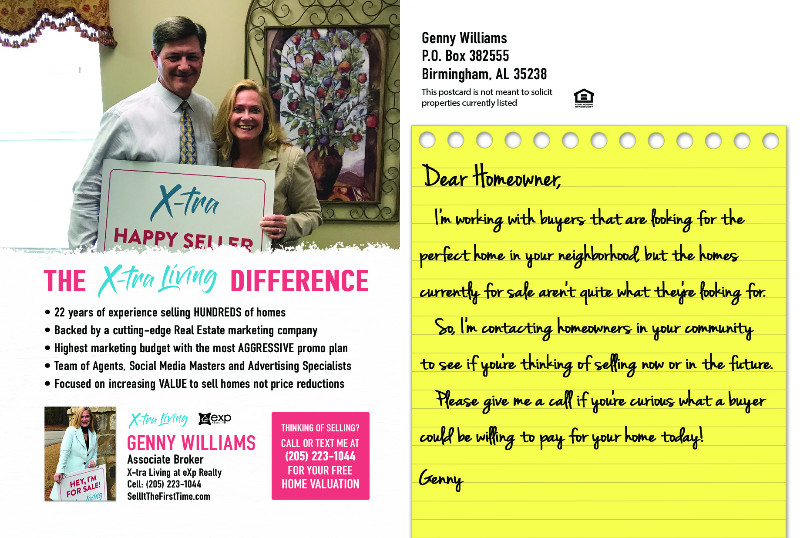 X-tra
HAPPY SELLER
THE X-tra Living DIFFERENCE
• 22 years of experience selling HUNDREDS of homes
• Backed by a cutting-edge Real Estate marketing company
• Highest marketing budget with the most AGGRESSIVE promo plan
• Team of Agents, Social Media Masters and Advertising Specialists
• Focused on increasing VALUE to sell homes not price reductions
HEY, I'M
FOR SALE!
Living
X-tra Living exp
GENNY WILLIAMS
Associate Broker
X-tra Living at eXp Realty
Cell: (205) 223-1044
SellItTheFirstTime.com
THINKING OF SELLING?
CALL OR TEXT ME AT
(205) 223-1044
FOR YOUR FREE
HOME VALUATION
Genny Williams
P.O. Box 382555
Birmingham, AL 35238
This postcard is not meant to solicit
properties currently listed
Dear Homeowner,
I'm working with buyers that are looking for the
perfect home in your neighborhood, but the homes
currently for sale aren't quite what they're looking for.
So, I'm contacting homeowners in your community
to see if you're thinking of selling now or in the future.
Please give me a call if you're curious what a buyer
could be willing to pay for your home today!
Genny